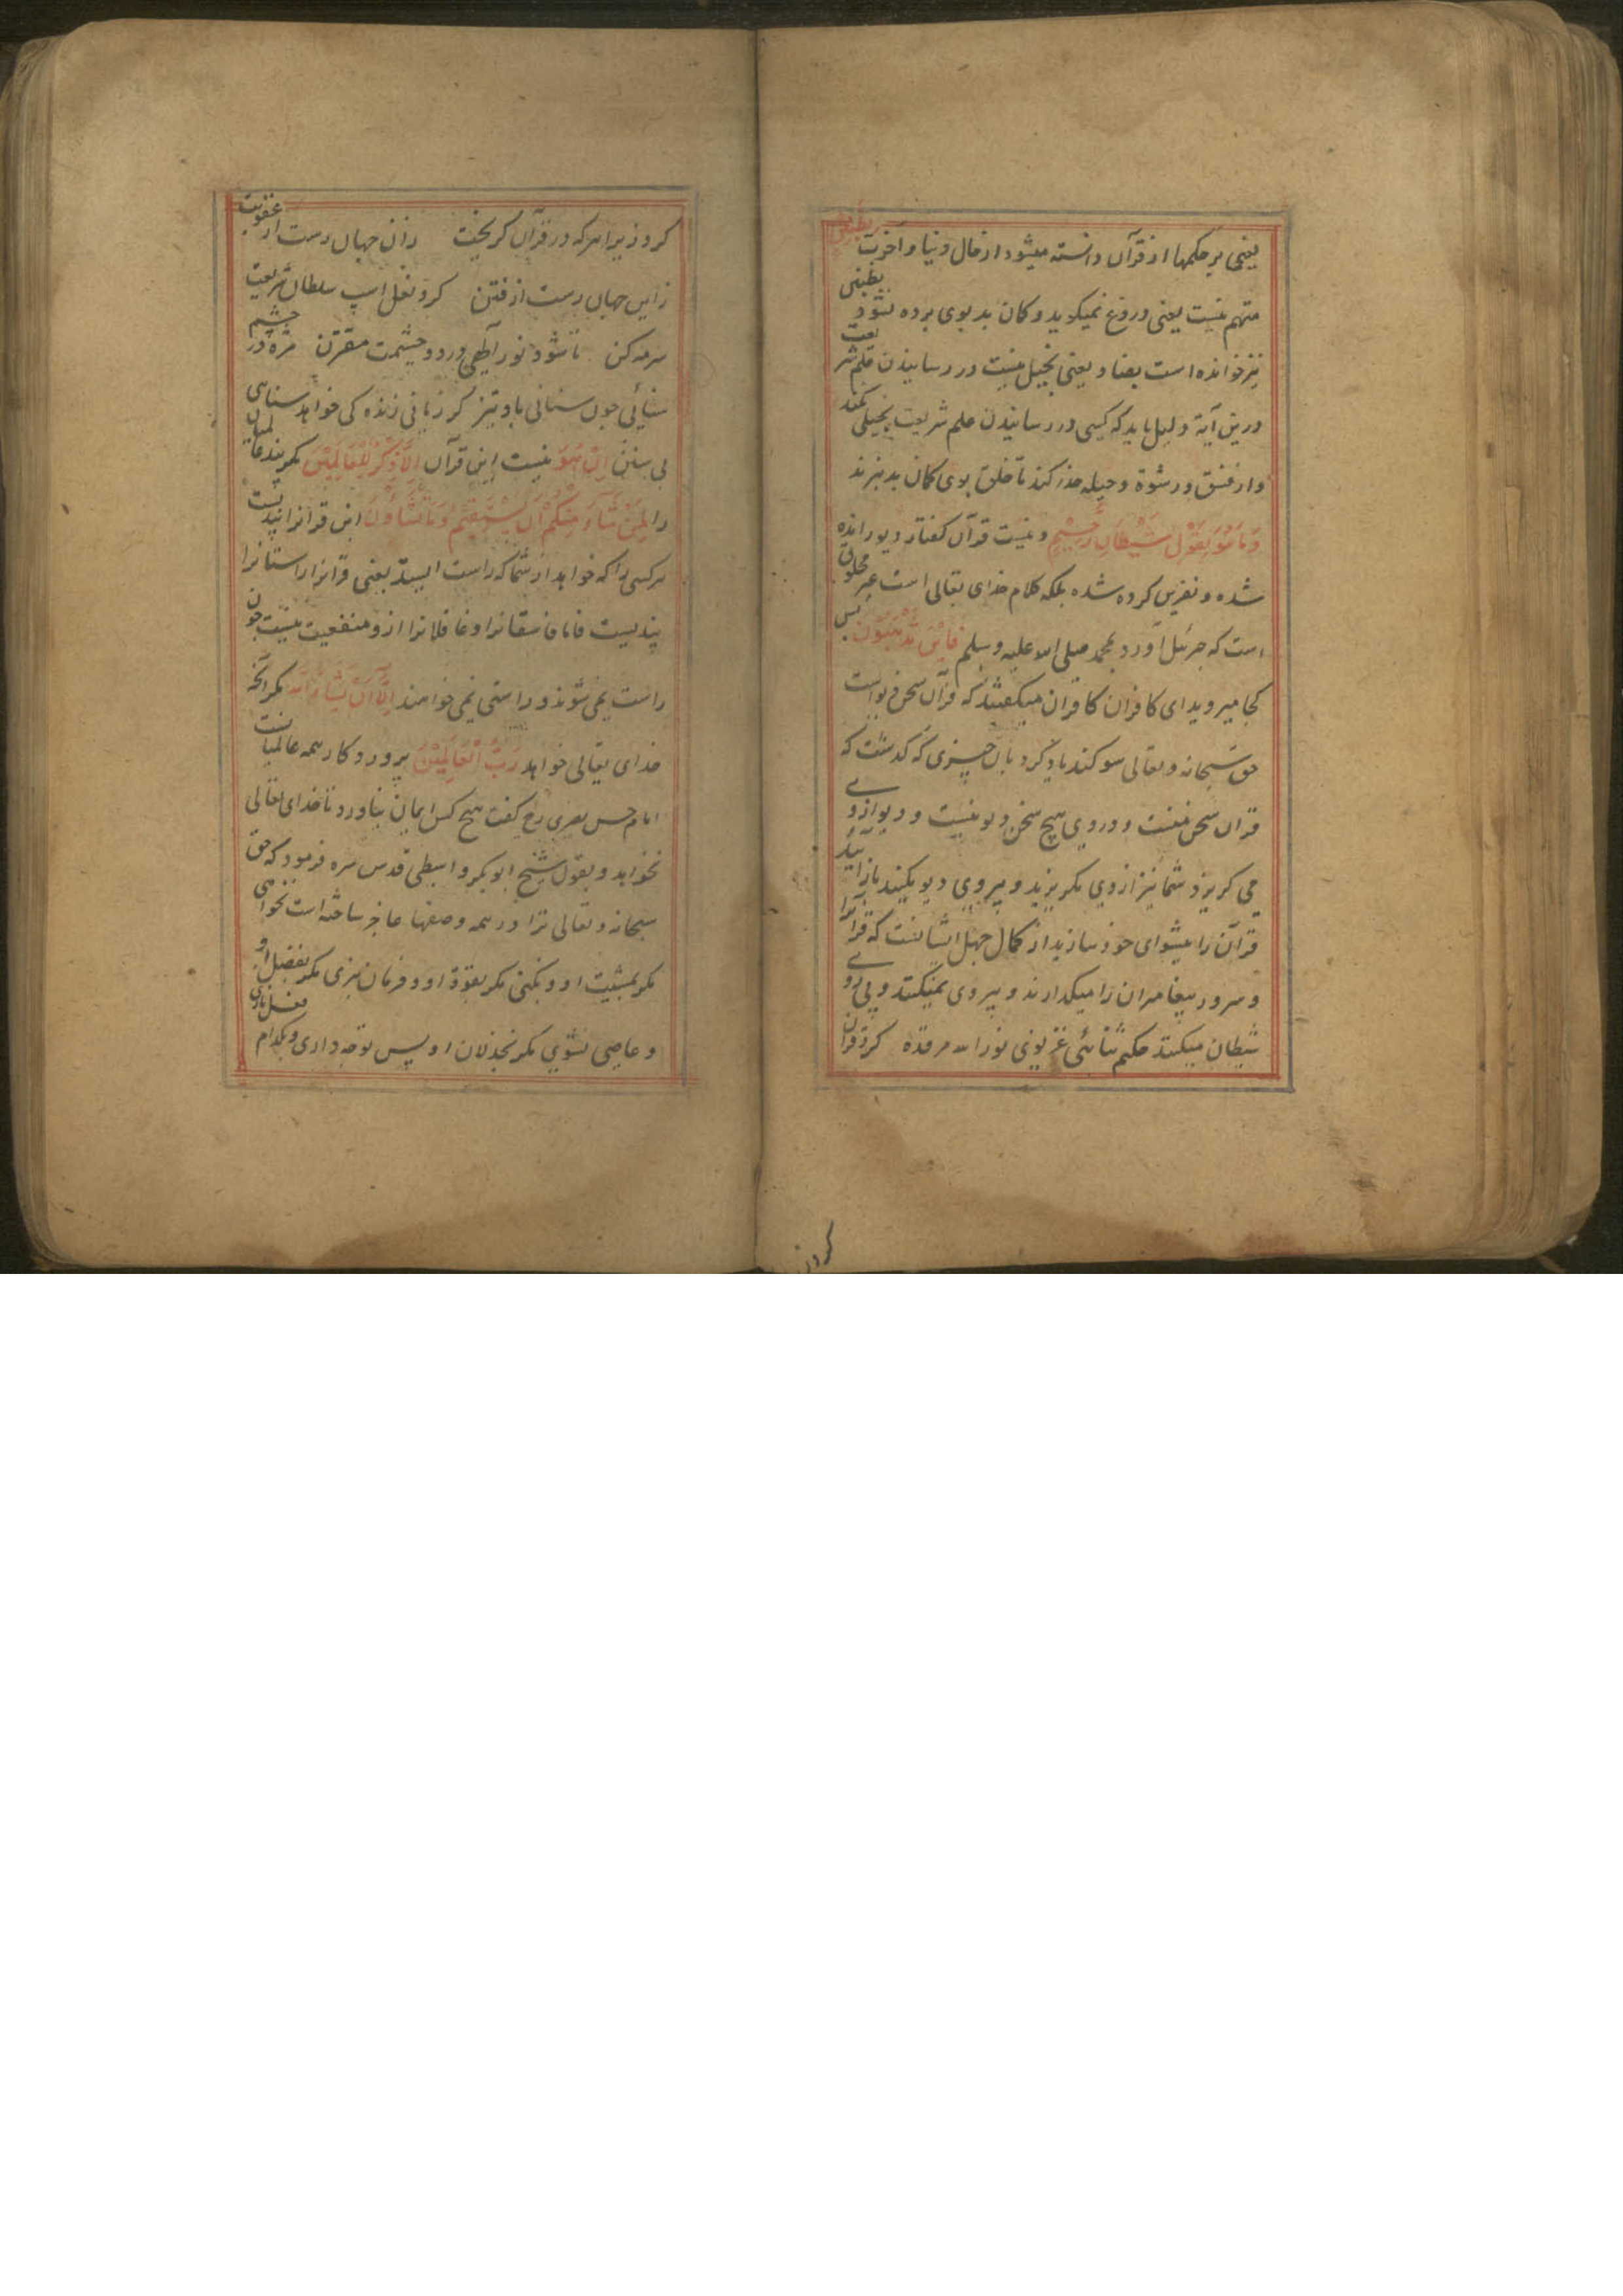 یعنی بر حکمها از قرآن دانسته میشود از حال دنیا و آخرت بظنین
متهم نیست یعنی دروغ نمیکوید و کان بد بوی برده نشود بظنین
نیز خوانده است بضاد یعنی بخیل نیست در رسانیدن علم شریعت
درین آیة دلیل باید که کسی در رسانیدن علم شریعت بخیلی نکند
و از فسق و رشوة و حیله حذر کند تا خلق بوی کمان بد نبرند
وَمَا هُوَ بِقَوْلِ شَيْطَانٍ رَجِيْمٍ و نیست قرآن کفتار دیو رانده
شده و نفرین کرده شده بلکه کلام خدای تعالی است غیر مخلوق
است که جبرئیل آورد بمحمد صلی الله علیه وسلم فَاَيْنَ تَذْهَبُوْنَ پس
کجا میروید ای کافران کافران میکفتند که قرآن سخن دیو است
حق سبحانه و تعالی سوکند یاد کرد بان چیزی که کدشت که
قران سخن منست و دروی هیچ سخن دیو نیست و دیو از وی
می کریزد شما نیز ازوی مکریزید و پیروی دیو مکنید باز آیید
قرآن را پیشوای خود سازید از کمال جهل ایشانست که قرآنرا
و سرور پیغامبران را میکدارند و پیروی نمیکنند و پی روی
شیطان میکنند حکیم ثنائی غزنوی نور الله مرقده کرد قران
کرد زیرا هرکه در قرآن کریخت زان جهان رست از عقوبت
زاین جهان رست از فتن کرد نعل اسپ سلطان شریعت
سرمه کن تا شود نور آلهی در دو چشمت مقترن مژه در چشم
سنائی چون سنانی باد تیز کر زمانی زنده کی خواهد سنائی
بی سنن اِنْ هُوَ نیست این قرآن اِلَّا ذِكْرٌ لِلْعَالَمِيْنَ مکر پند عالمیان
را لِمَنْ شَاءَ مِنْكُمْ اَنْ يَسْتَقِيْمَ وَمَا تَشَاؤُنَ این قرانرا پندیست
هر کسی را که خواهد از شما که راست ایستد یعنی قرانرا راستانرا
پندیست فاما فاسقانرا و غافلانرا ازو منفعیت نیست چون
راست نمی شوند و راستی نمی خواهند اِلَّا اَنْ يَشَاءَ اللهُ مکر آنکه
خدای تعالی خواهد رَبُّ الْعَالَمِيْنَ پروردکار همه عالمیانست
امام حسن بصری رح کفت هیچ کس ایمان نیاورد تا خدای تعالی
نخواهد و بقول شیخ ابوبکر واسطی قدس سره فرمود که حق
سبحانه و تعالی ترا در همه وصفها عاجز ساخته است نخواهی
مکر بمشیت او و نکنی مکر بقوة او و فرمان نبری مکر بفضل او
و عاصی نشوی مکر بخذلان او پس توچه داری و بکدام فعل نازی